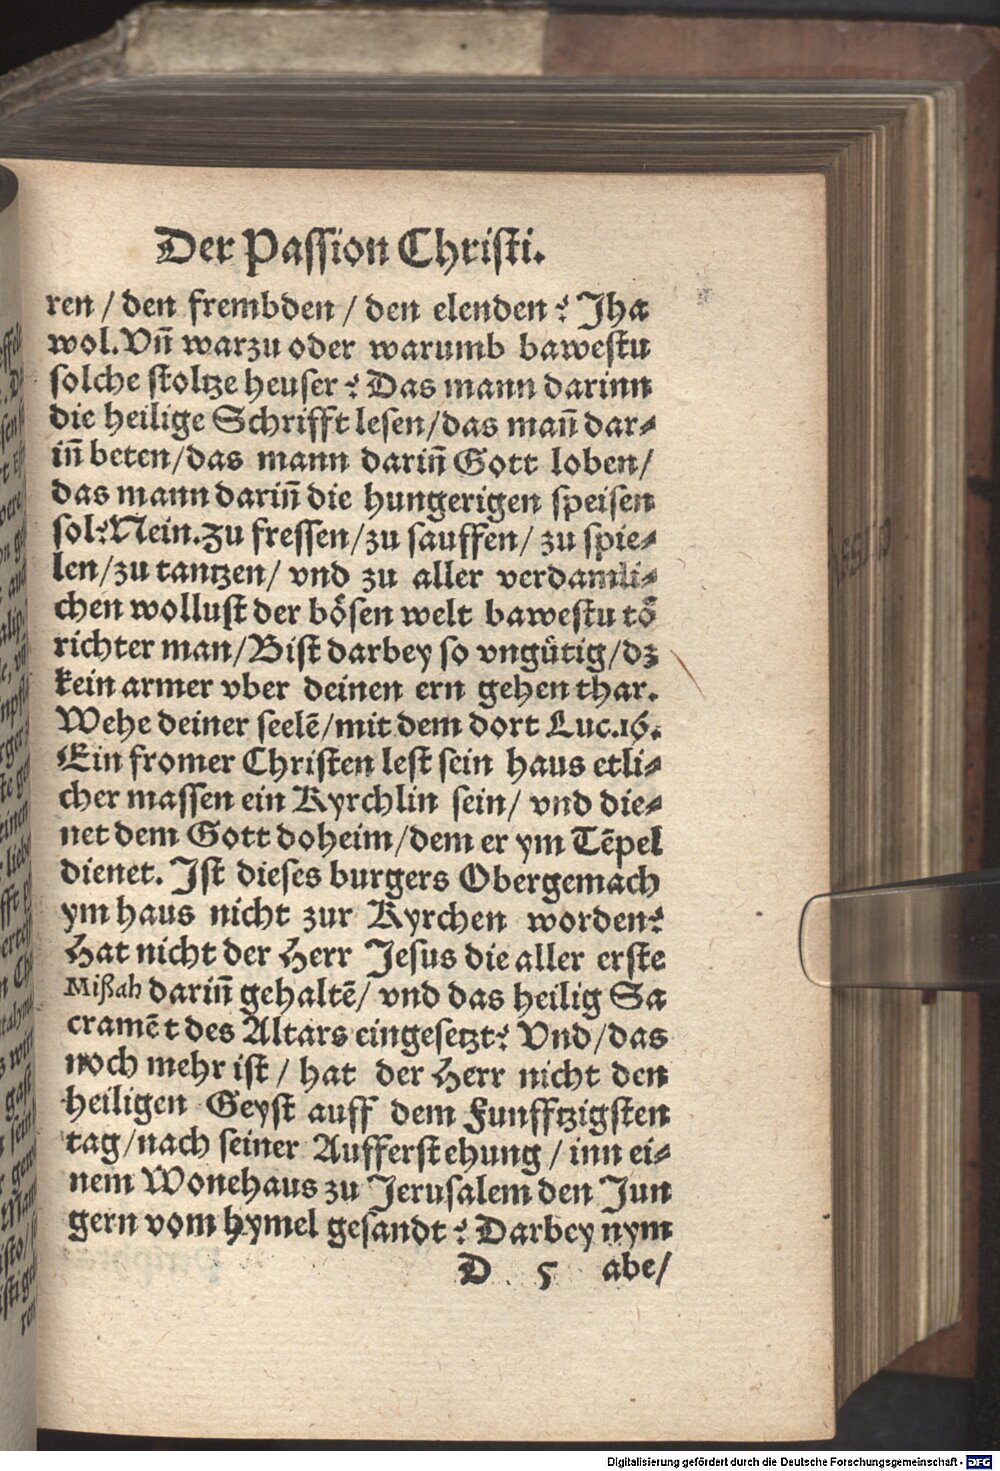 Der Passion Christi.
ren / den frembden / den elenden? Jha
wol. Vñ warzu oder warumb bawestu
solche stoltze heuser? Das mann darinn
die heilige Schrifft lesen/das mañ dar⸗
iñ beten/das mann dariñ Gott loben/
das mann dariñ die hungerigen speisen
sol? Nein. Zu fressen/zu sauffen/ zu spie⸗
len/zu tantzen/ vnd zu aller verdamli⸗
chen wollust der bösen welt bawestu tö
richter man/Bist darbey so vngütig/dz
kein armer vber deinen ern gehen thar.
Wehe deiner seelē/mit dem dort Luc.16.
Ein fromer Christen lest sein haus etli⸗
cher massen ein Kyrchlin sein/ vnd die⸗
net dem Gott doheim/dem er ym Tēpel
dienet. Ist dieses burgers Obergemach
ym haus nicht zur Kyrchen worden?
Hat nicht der Herr Jesus die aller erste
Mißah dariñ gehaltē/ vnd das heilig Sa
cramēt des Altars eingesetzt? Vnd/das
noch mehr ist / hat der Herr nicht den
heiligen Geyst auff dem Funfftzigsten
tag/nach seiner Aufferstehung / inn ei⸗
nem Wonehaus zu Jerusalem den Jun
gern vom hymel gesandt? Darbey nym
D 5 abe/
Digitalisierung gefördert durch die Deutsche Forschungsgemeinschaft - DFG